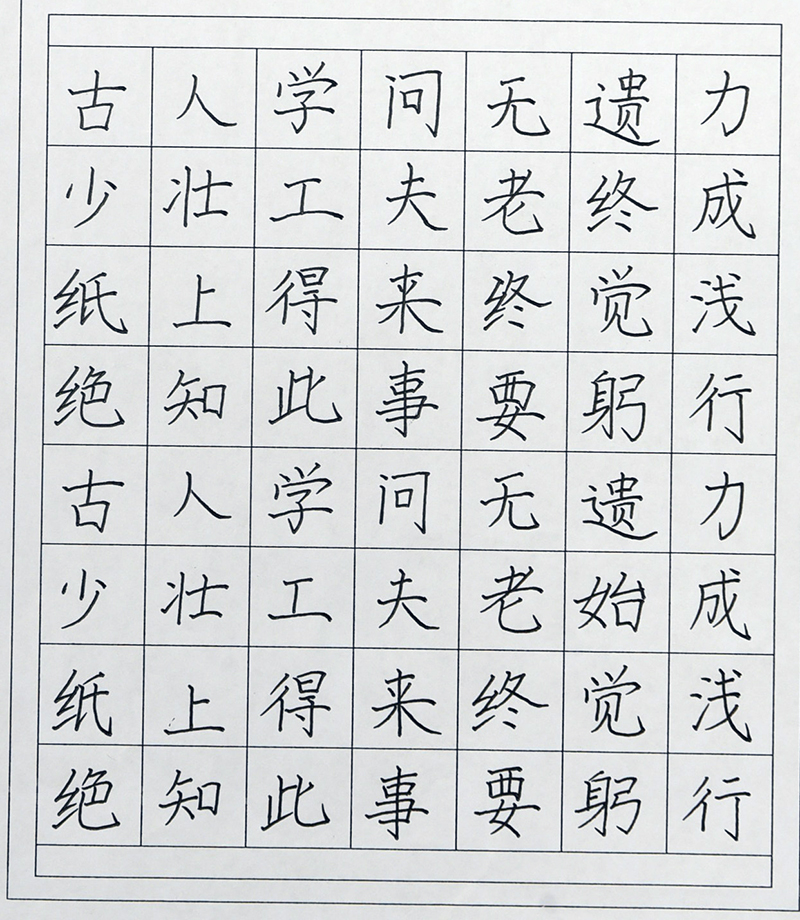 古人学问无遗力
少壮工夫老终成
纸上得来终觉浅
绝知此事要躬行
古人学问无遗力
少壮工夫老始成
纸上得来终觉浅
绝知此事要躬行